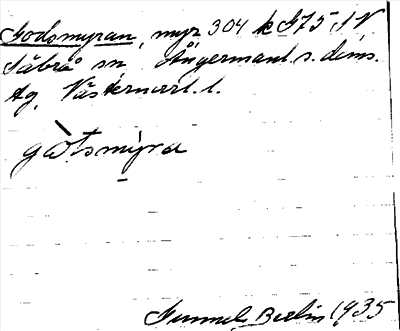 Godsmyran, myr 304 k G75, IV
Säbrå sn Ångermanl. s. doms.
äg, Västernorrl. l.
gòtsmỳra
Gunnel Berlin 1935